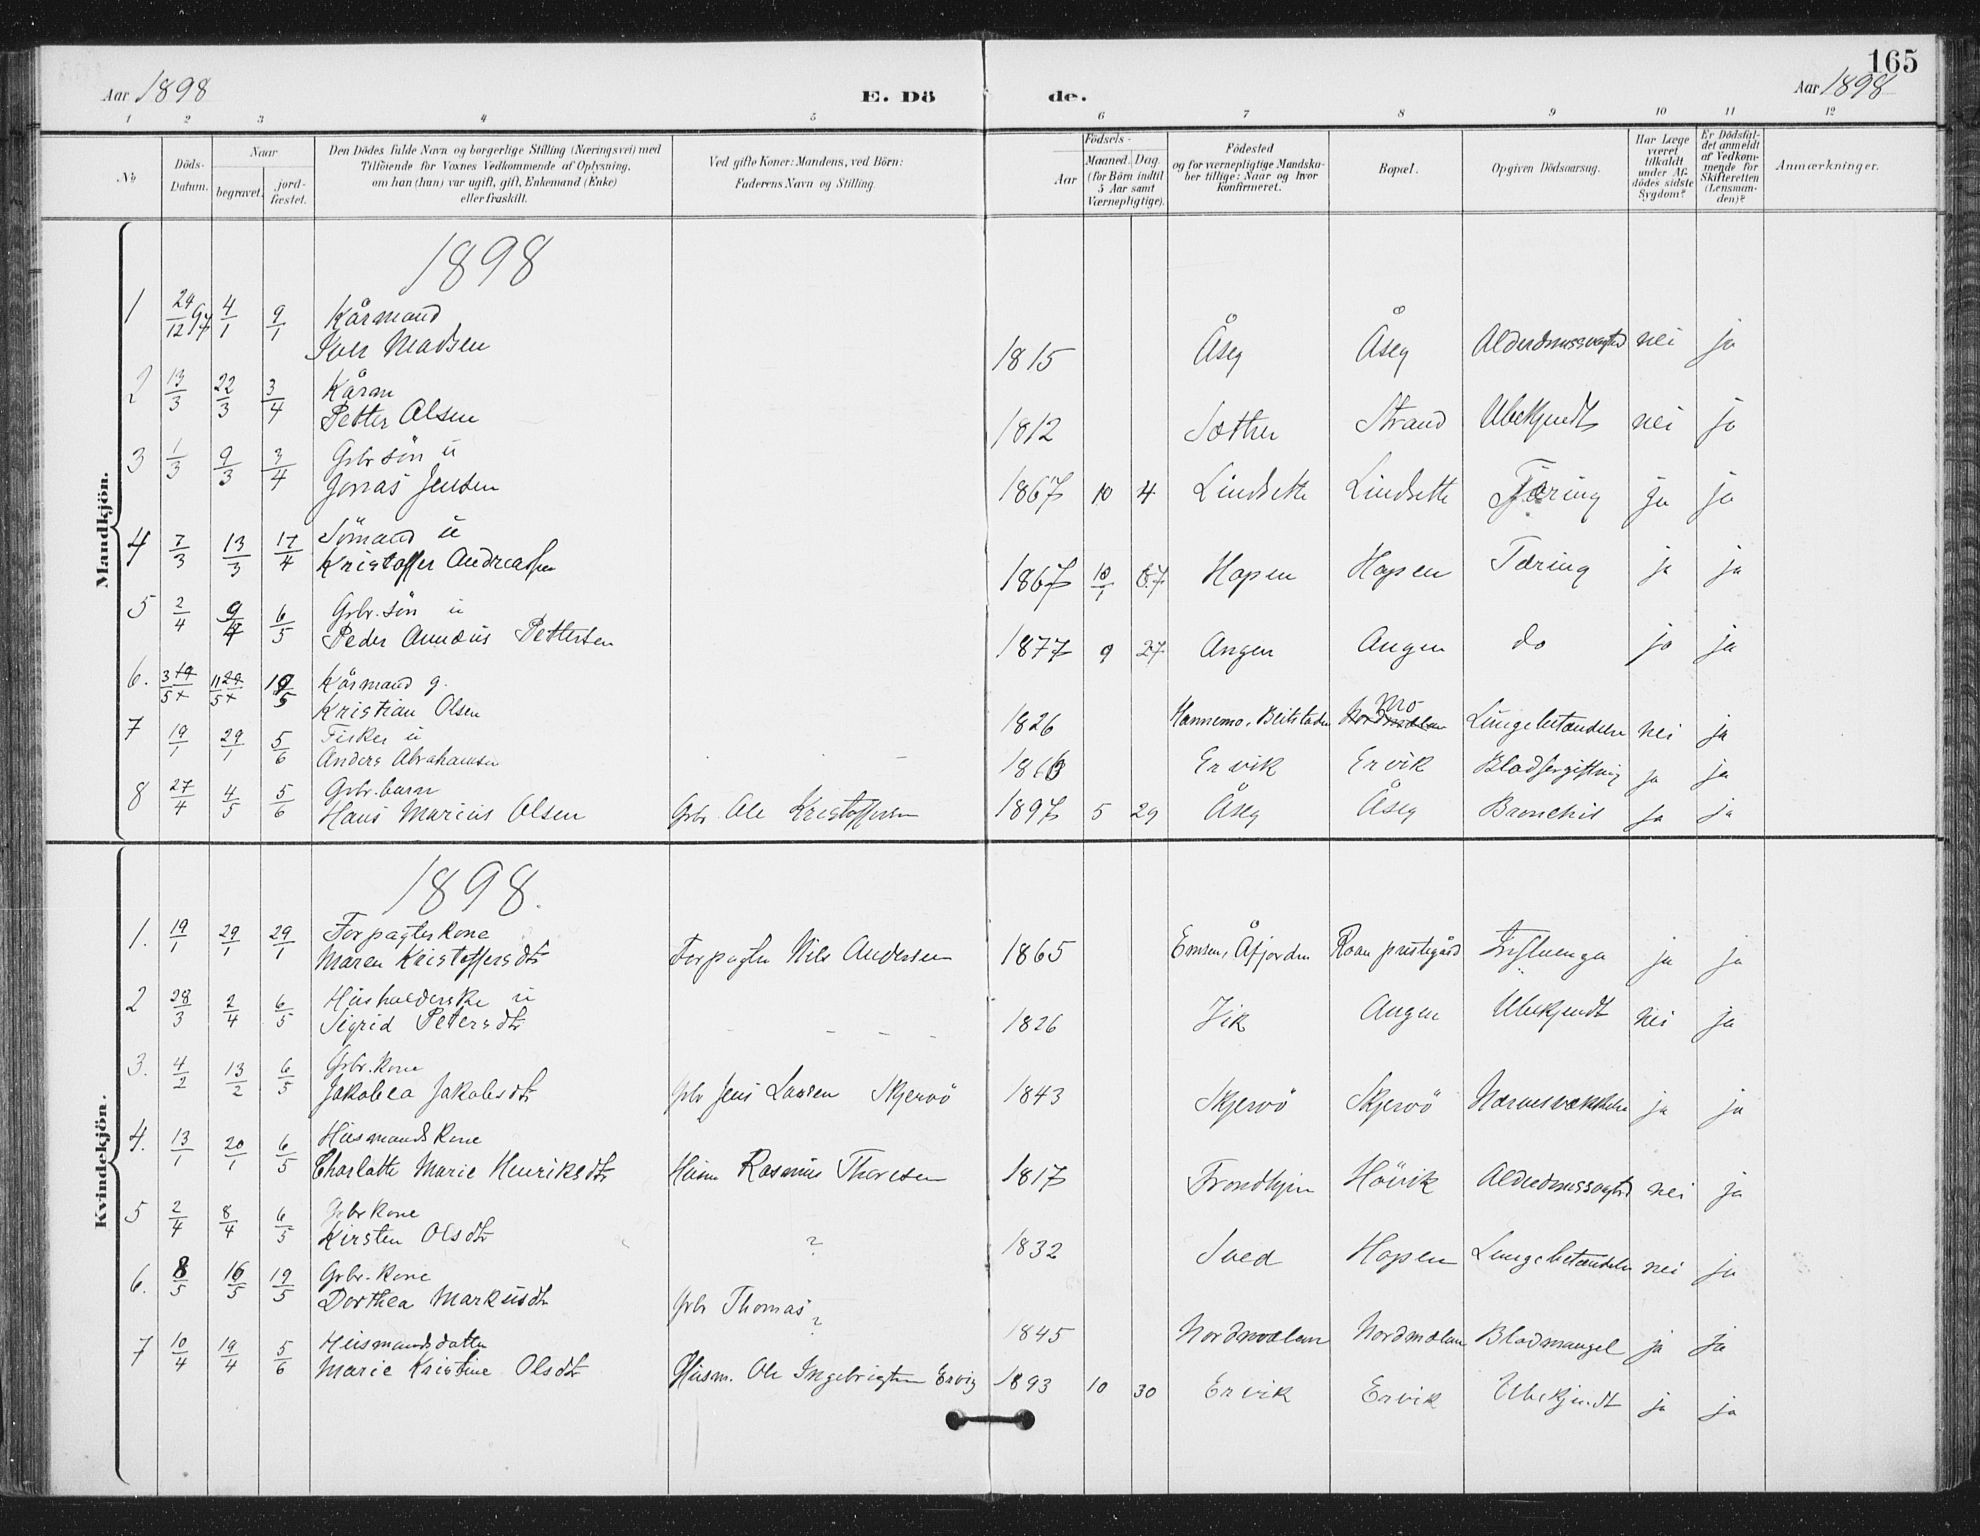 165
Aar 1898
E. Dö de.
Aar 1898
1 2 3 4 5 6 7 8 9 10 11 12
No
Döds-Datum.
Naar
begravet.
jord-fæstet.
Den Dödes fulde Navn og borgerlige Stilling (Næringsvei) med
Tilföiende for Voxnes Vedkommende af Oplysning,
om han (hun) var ugift, gift, Enkemand (Enke)
eller fraskilt.
Ved gifte Koner: Mandens, ved Börn:
Faderens Navn og Stilling
Födsels-
Aar
Maaned. Dag.
(for Börn indtil
5 Aar samt
Værnepligtige).
Födested
og for værnepligtige Mandska-
ber tillige: Naar og hvor
konfirmeret.
Bopæl.
Opgiven Dödsaarsag.
Har Læge
været
tilkaldt
under Af-
dödes sidste
Sygdom?
Er Dödsfal-
det anmeldt
af Vedkom-
mende for
Skifteretten
(Lensman-
den)?
Anmærkninger.
Mandkjön.
1898
1 29/12 97 4/1 9/1 Kårmand
Madsen 1815 Åseg Åseg Alderdomssvaghed nei ja
2 13/3 22/3 3/4 Kårm
Petter Olsen 1812 Sæther Strand Ubekjendt nei ja
3 1/3 9/3 3/4 Grbr søn u
Jonas Jensen 1867 10 4 Lindsette Lindsette Tæring ja ja
4 7/3 13/3 17/4 Sømand u
Kristoffer Andreassen 1867 Hopen Hopen Tæring ja ja
5 2/4 9/4 6/5 Grbr. søn u
Peder Annæus Pettersen 1877 9 27 Angen Angen do ja ja
6. 3/5 11/5 19/5 Kårmand g.
Kristian Olsen 1826 Hannemo, Beitstaden Mo Lungebetændelse nei ja
7 19/1 29/1 5/6 Fisker u
Anders Abrahamsen Ervik Ervik Blodforgiftning ja ja
8 27/4 4/5 5/6 Grbr. barn
Hans Marius Olsen Grbr. Ole Kristoffersen 1897 5 29 Åseg Åseg Bronchit ja ja
Kvindekjön.
1898.
1. 19/1 29/1 29/1 Forpagterkone
Maren Kristoffersdtr Forpagter Nils Andersen 1865 Emsen, Åfjorden Roan prestegård Influenza ja ja
2 28/3 2/4 6/5 Husholderske u
Sigrid Petersdtr - - - - 1826 Vik Angen Ubekjendt nei ja
3. 4/2 13/2 6/5 Grbr. kone
Jakobea Jakobsdtr Grbr Jens Larsen Skjervö 1843 Skjervö Skjervö Nærvesvækkelse ja ja
4. 13/1 20/1 6/5 Husmandskone
Charlotte Marie Henriksdtr Husm Rasmus Thoresen 1817 Trondhjem Hövik Alderdomssvaghed nei ja
5 2/4 8/4 6/5 Grbr kone
Kirsten Olsdtr ? 1832 Sved Hopen Lungebetændelse nei ja
6. 8/5 16/5 19/5 Grbr. kone
Dorthea Markusdtr Grbr Thomas ? 1845 Nordmælan Nordmælan Blodmangel ja ja
7 10/4 19/4 5/6 Husmandsdatter
Marie Kristine Olsdtr Husm. Ole Ingebrigtsen Ervig 1893 10 30 Ervik Ervik Ubekjendt ja ja